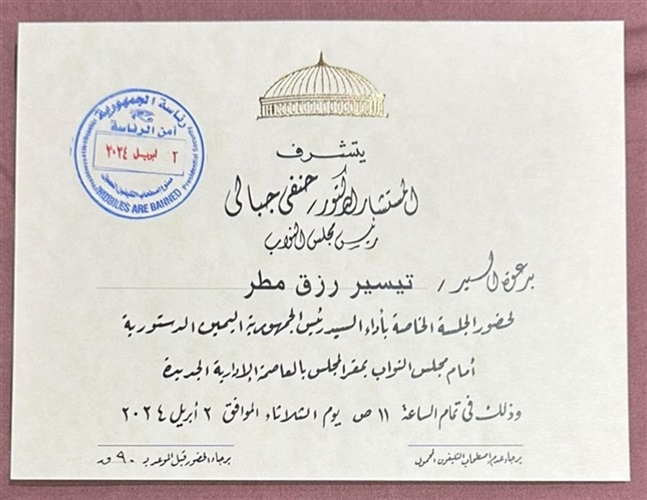 رئاسة الجمهورية
أمن الرئاسة
٢ ابريل ٢٠٢٤
ممنوع اصطحاب التليفون المحمول
MOBILES ARE BANNED
Presidential Security
يتشرف
المستشار الدكتور / حنفى جبالى
رئيس مجلس النواب
بدعوة السيد / تيسير رزق مطر
لحضور الجلسة الخاصة بأداء السيد رئيس الجمهورية اليمين الدستورية
أمام مجلس النواب بمقر المجلس بالعاصمة الإدارية الجديدة
وذلك فى تمام الساعة ١١ ص يوم الثلاثاء الموافق ٢ أبريل ٢٠٢٤
برجاء عدم اصطحاب التليفون المحمول
برجاء الحضور قبل الموعد بـ ٩٠ ق